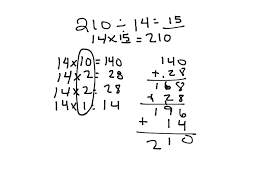 210 ÷ 14 = 15
14 × 15 = 210
14 × 10 = 140
14 × 2 = 28
14 × 2 = 28
14 × 1 = 14
140
+ 28
168
+ 28
196
+ 14
210